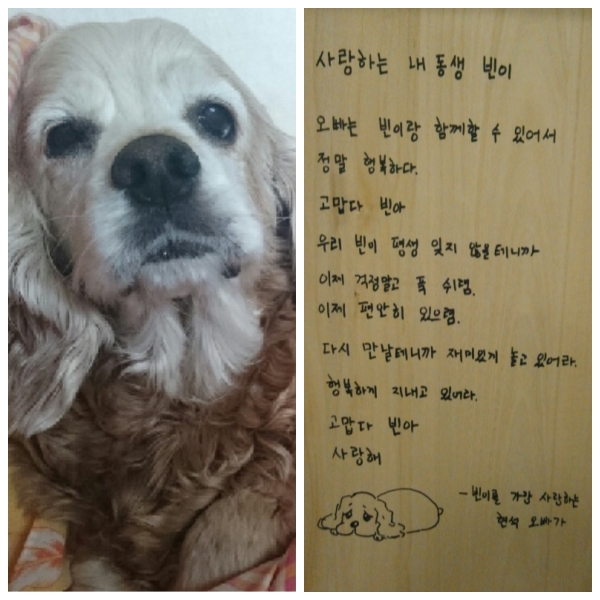 사랑하는 내 동생 빈이
오빠는 빈이랑 함께할 수 있어서
정말 행복하다.
고맙다 빈아
우리 빈이 평생 잊지 않을테니까
이제 걱정말고 푹 쉬렴.
이제 편안히 있으렴.
다시 만날테니까 재미있게 놀고 있어라.
행복하게 지내고 있어라.
고맙다 빈아
사랑해
-빈이를 가장 사랑하는
현석 오빠가